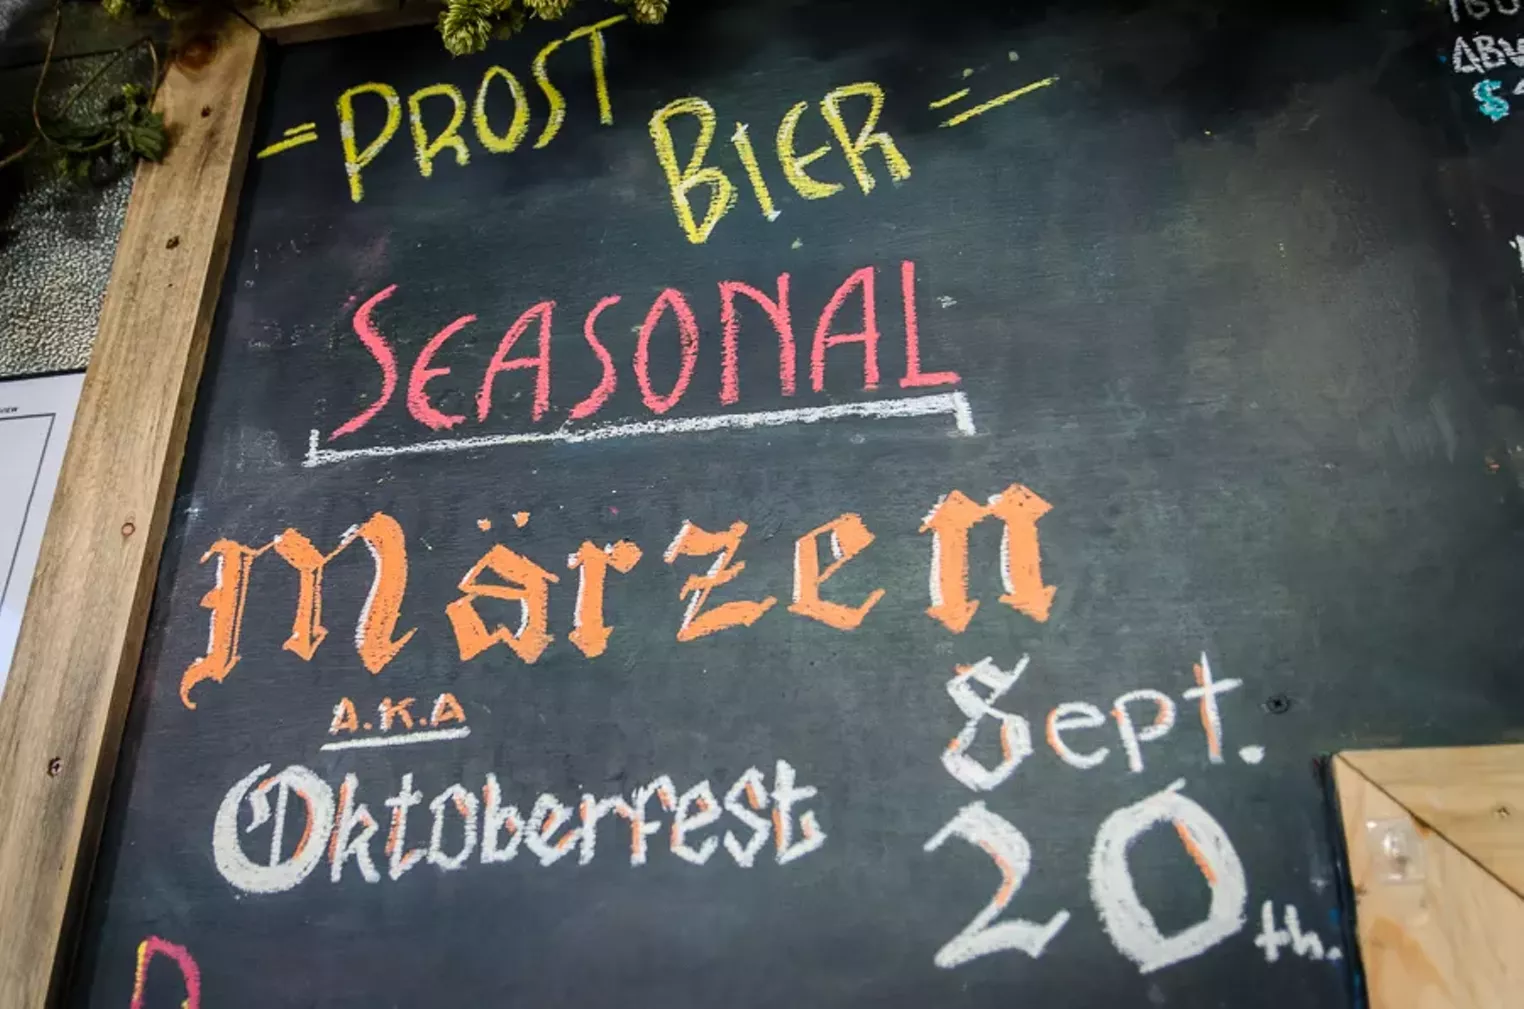 = PROST BIER =
SEASONAL
Märzen
A.K.A
Oktoberfest
Sept.
20th.
ABV
$